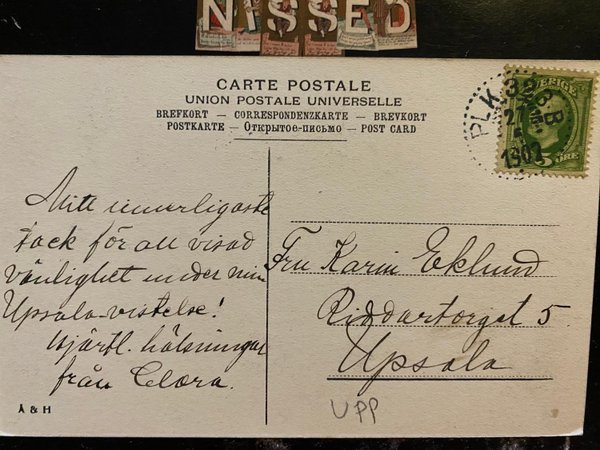 NISSED
CARTE POSTALE
UNION POSTALE UNIVERSELLE
BREFKORT — CORRESPONDENZKARTE — BREVKORT
POSTKARTE — Открытое-письмо — POST CARD
PLK. 32 B.
27
1902
SVERIGE
5 ÖRE
Mitt innerligaste
tack för all visad
vänlighet under min
Upsala-vistelse!
Hjärtl. hälsningar
från Clara.
Fru Karin Eklund
Riddartorget 5.
Upsala
UPP
A & H